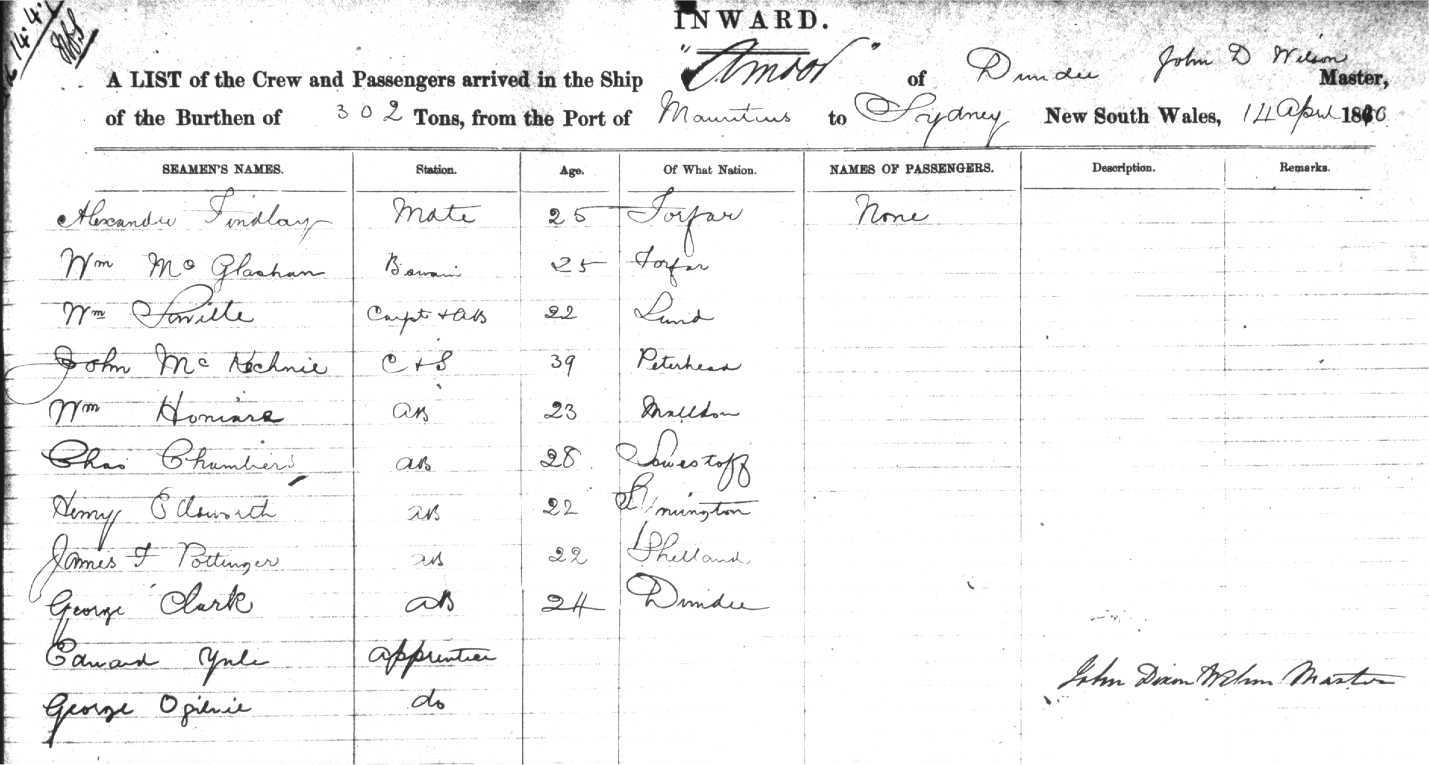 14.4.
INWARD.
A LIST of the Crew and Passengers arrived in the Ship "Amoor" of Dundee John D Wilson Master,
of the Burthen of 302 Tons, from the Port of Mauritius to Sydney New South Wales, 14 April 18
SEAMEN'S NAMES. Station. Age. Of What Nation. NAMES OF PASSENGERS. Description. Remarks.
Alexander Findlay Mate 25 Forfar None
Wm Mc Glashan 25 Forfar
Wm Saville Carpt + AB 22 Lund
John Mc Kechnie C + S 39 Peterhead
Wm AB 23 Malldon
Chas Chambers AB 28 Lowestoff
Henry Edsworth AB 22
James F Pottinger AB 22 Shetland
George Clark AB 24 Dundee
Edward Yule Apprentice
George Ogilvie do
John Dixon Wilson Master